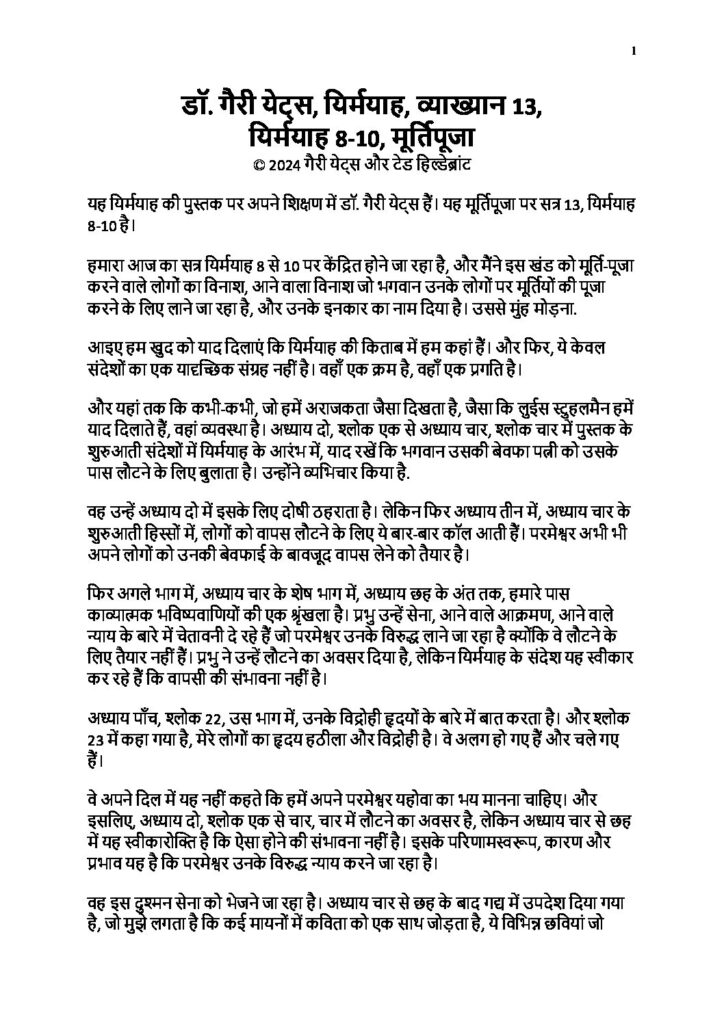 1
डॉ. गैरी येट्स, यिर्मयाह, व्याख्यान 13,
यिर्मयाह 8-10, मूर्तिपूजा
© 2024 गैरी येट्स और टेड हिल्डेब्रांट
यह यिर्मयाह की पुस्तक पर अपने शिक्षण में डॉ. गैरी येट्स हैं। यह मूर्तिपूजा पर सत्र 13, यिर्मयाह
8-10 है।
हमारा आज का सत्र यिर्मयाह 8 से 10 पर केंद्रित होने जा रहा है, और मैंने इस खंड को मूर्ति-पूजा
करने वाले लोगों का विनाश, आने वाला विनाश जो भगवान उनके लोगों पर मूर्तियों की पूजा
करने के लिए लाने जा रहा है, और उनके इनकार का नाम दिया है। उससे मुंह मोड़ना.
आइए हम खुद को याद दिलाएं कि यिर्मयाह की किताब में हम कहां हैं। और फिर, ये केवल
संदेशों का एक यादृच्छिक संग्रह नहीं है। वहाँ एक क्रम है, वहाँ एक प्रगति है।
और यहां तक कि कभी-कभी, जो हमें अराजकता जैसा दिखता है, जैसा कि लुईस स्टुहलमैन हमें
याद दिलाते हैं, वहां व्यवस्था है। अध्याय दो, श्लोक एक से अध्याय चार, श्लोक चार में पुस्तक के
शुरुआती संदेशों में यिर्मयाह के आरंभ में, याद रखें कि भगवान उसकी बेवफा पत्नी को उसके
पास लौटने के लिए बुलाता है। उन्होंने व्यभिचार किया है.
वह उन्हें अध्याय दो में इसके लिए दोषी ठहराता है। लेकिन फिर अध्याय तीन में, अध्याय चार के
शुरुआती हिस्सों में, लोगों को वापस लौटने के लिए ये बार-बार कॉल आती हैं। परमेश्वर अभी भी
अपने लोगों को उनकी बेवफाई के बावजूद वापस लेने को तैयार है।
फिर अगले भाग में, अध्याय चार के शेष भाग में, अध्याय छह के अंत तक, हमारे पास
काव्यात्मक भविष्यवाणियों की एक श्रृंखला है। प्रभु उन्हें सेना, आने वाले आक्रमण, आने वाले
न्याय के बारे में चेतावनी दे रहे हैं जो परमेश्वर उनके विरुद्ध लाने जा रहा है क्योंकि वे लौटने के
लिए तैयार नहीं हैं। प्रभु ने उन्हें लौटने का अवसर दिया है, लेकिन यिर्मयाह के संदेश यह स्वीकार
कर रहे हैं कि वापसी की संभावना नहीं है।
अध्याय पाँच, श्लोक 22, उस भाग में, उनके विद्रोही हृदयों के बारे में बात करता है। और श्लोक
23 में कहा गया है, मेरे लोगों का हृदय हठीला और विद्रोही है। वे अलग हो गए हैं और चले गए
हैं।
वे अपने दिल में यह नहीं कहते कि हमें अपने परमेश्वर यहोवा का भय मानना चाहिए। और
इसलिए, अध्याय दो, श्लोक एक से चार, चार में लौटने का अवसर है, लेकिन अध्याय चार से छह
में यह स्वीकारोक्ति है कि ऐसा होने की संभावना नहीं है। इसके परिणामस्वरूप, कारण और
प्रभाव यह है कि परमेश्वर उनके विरुद्ध न्याय करने जा रहा है।
वह इस दुश्मन सेना को भेजने जा रहा है। अध्याय चार से छह के बाद गद्य में उपदेश दिया गया
है, जो मुझे लगता है कि कई मायनों में कविता को एक साथ जोड़ता है, ये विभिन्न छवियां जो